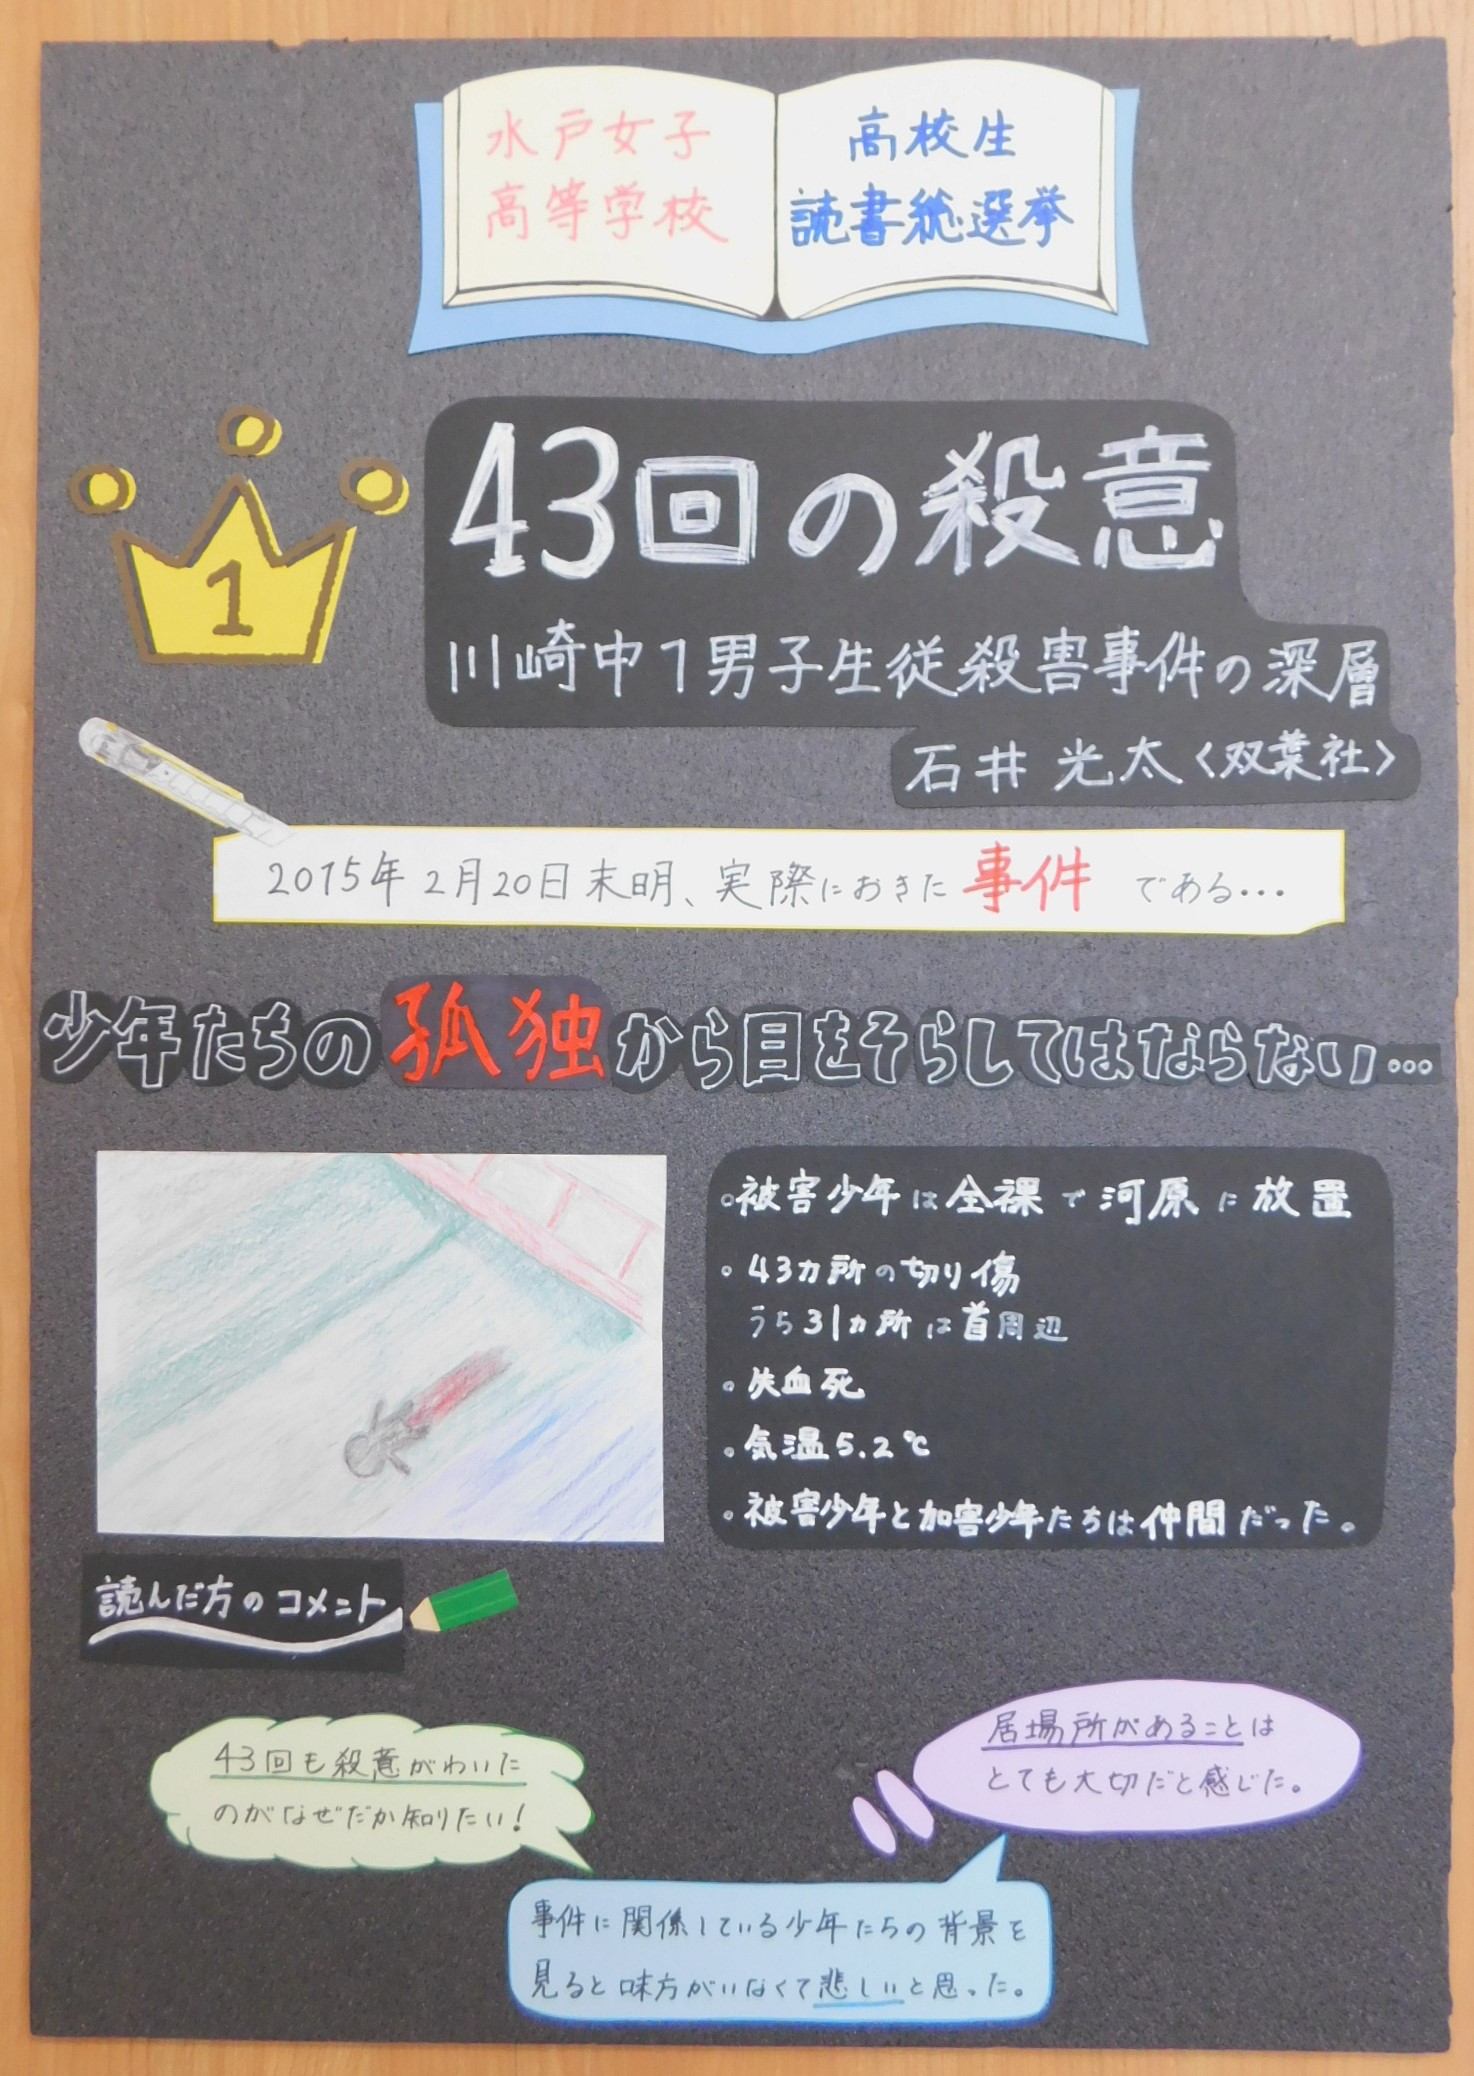 水戸女子
高等学校
高校生
読書総選挙
1
43回の殺意
川崎中1男子生従殺害事件の深層
石井 光太〈双葉社〉
2015年2月20日未明、実際におきた事件である…
少年たちの孤独から目をそらしてはならない…
。被害少年は全裸で河原に放置
。43カ所の切り傷
うち31カ所は首周辺
。失血死
。気温5.2℃
。被害少年と加害少年たちは仲間だった。
読んだ方のコメント
43回も殺意がわいた
のがなぜだか知りたい!
居場所があることは
とても大切だと感じた。
事件に関係している少年たちの背景を
見ると味方がいなくて悲しいと思った。